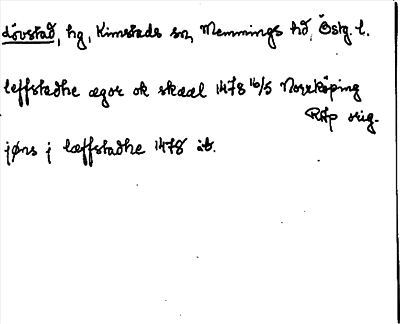 Lövstad, hg, Kimstads sn, Memmings hd, Östg. l.
leffstadhe ægor ok skæal 1478 16/5 Norrköping
RAp orig.
jøns j læffstadhe 1478 ib.